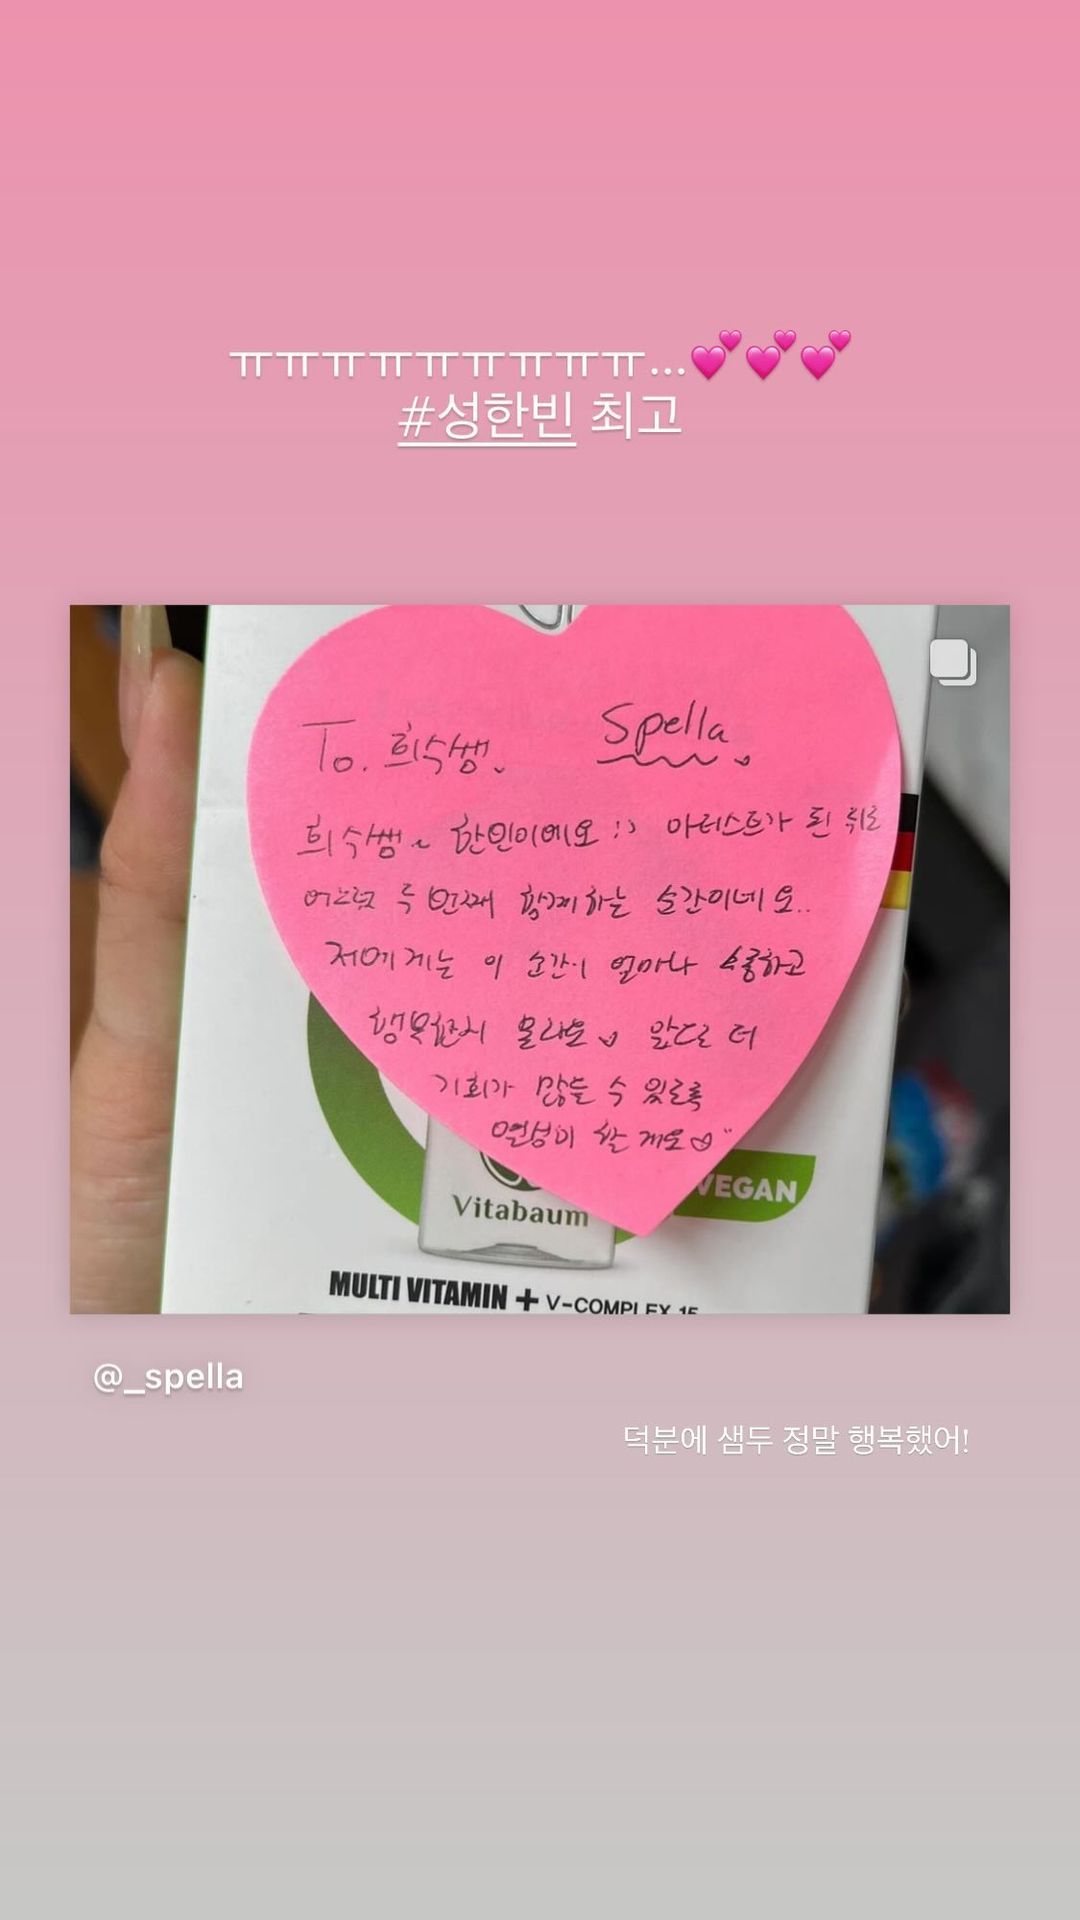 ㅠㅠㅠㅠㅠㅠㅠㅠㅠ...💕💕💕
#성한빈 최고
To. 희수쌤 Spella
희수쌤~ 한빈이에요 :) 아티스트가 된 뒤로
어느덧 두 번째 함께하는 순간이네요..
저에게는 이 순간이 얼마나 소중하고
행복한지 몰라요 앞으로 더
기회가 많을 수 있도록
열심히 할게요♡
Vitabaum
VEGAN
MULTI VITAMIN + V-COMPLEX 15
@_spella
덕분에 샘두 정말 행복했어!